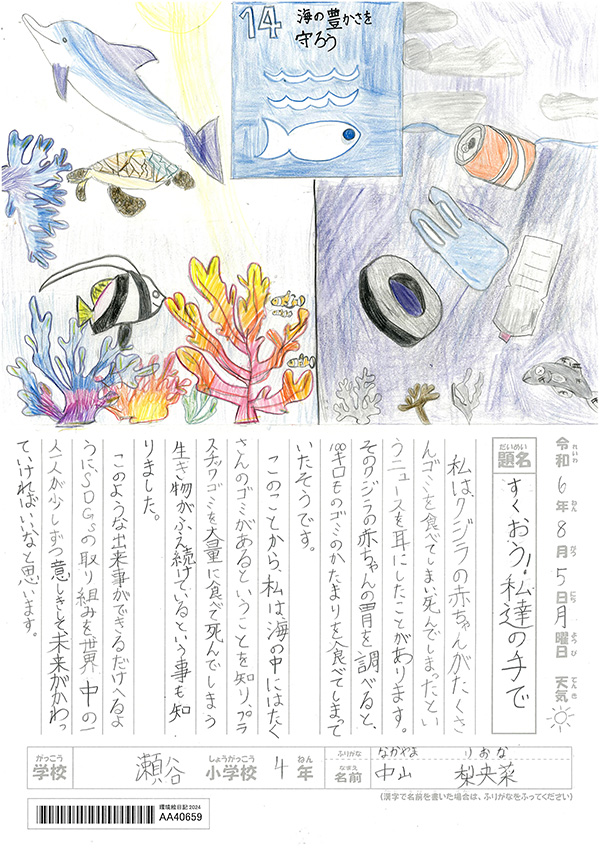 14 海の豊かさを
守ろう
令和6年8月5日月曜日 天気
れいわ ねん がつ にち ようび てんき
だいめい
題名
すくおう!私達の手で
私はクジラの赤ちゃんがたくさ
んゴミを食べてしまい死んでしまったとい
うニュースを耳にしたことがあります。
そのクジラの赤ちゃんの胃を調べると、
100キロものゴミのかたまりを食べてしまって
いたそうです。
このことから、私は海の中にはたく
さんのゴミがあるということを知り、プラ
スチックゴミを大量に食べて死んでしまう
生き物がふえ続けているという事も知
りました。
このような出来事ができるだけへるよ
うに、SDGsの取り組みを世界中の一
人一人が少しずつ意しきして未来がかわっ
ていければいいなと思います。
がっこう しょうがっこう ねん
学校 瀬谷 小学校 4年
ふりがな なかやま りおな
なまえ
名前 中山 梨央菜
(漢字で名前を書いた場合は、ふりがなをふってください)
環境絵日記2024
AA40659